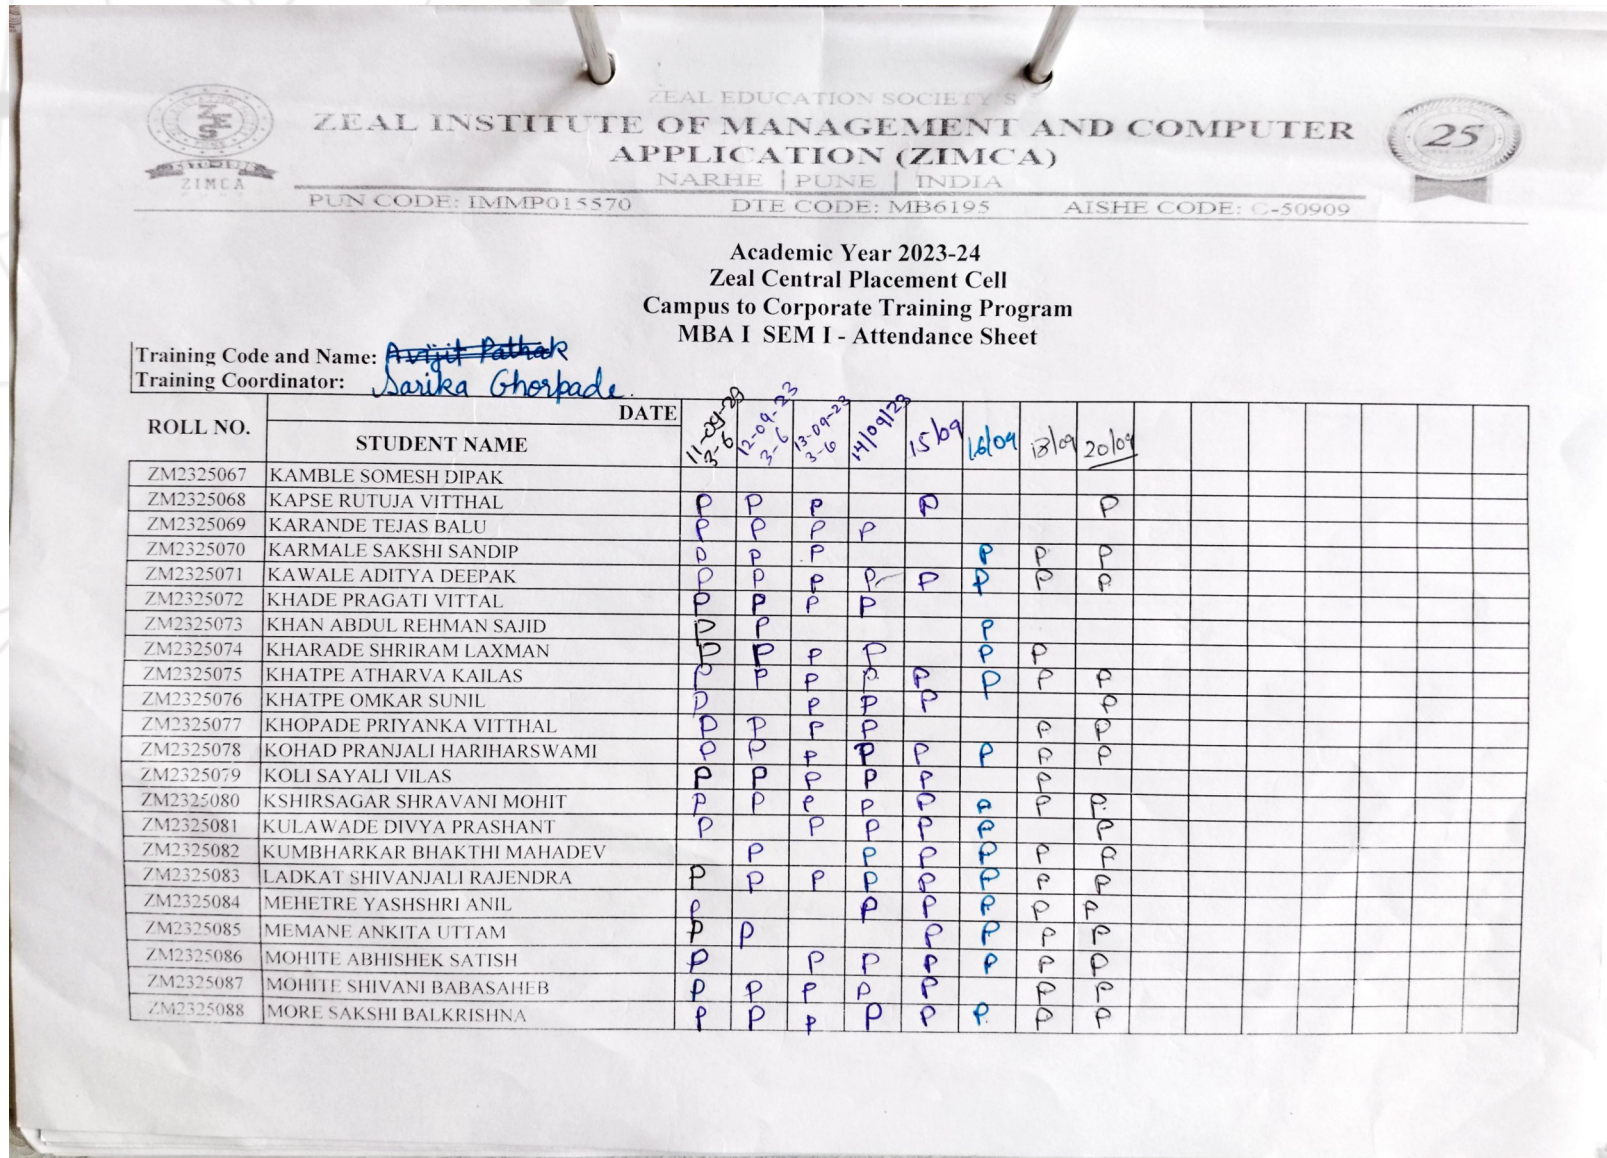 ZEAL EDUCATION SOCIETY'S
ZEAL INSTITUTE OF MANAGEMENT AND COMPUTER
APPLICATION (ZIMCA)
NARHE | PUNE | INDIA
PUN CODE: IMMP015570 DTE CODE: MB6195 AISHE CODE: C-50909
ZES
ZIMCA
25
Academic Year 2023-24
Zeal Central Placement Cell
Campus to Corporate Training Program
MBA I SEM I - Attendance Sheet
Training Code and Name: Avijit Pathak
Training Coordinator: Sarika Ghorpade.
ROLL NO. DATE 11-09-23 3-6 12-09-23 3-6 13-09-23 3-6 14/09/23 15/09 16/09 18/09 20/09
STUDENT NAME
ZM2325067 KAMBLE SOMESH DIPAK
ZM2325068 KAPSE RUTUJA VITTHAL P P P P P
ZM2325069 KARANDE TEJAS BALU P P P P
ZM2325070 KARMALE SAKSHI SANDIP P P P P P P
ZM2325071 KAWALE ADITYA DEEPAK P P P P P P P P
ZM2325072 KHADE PRAGATI VITTAL P P P P
ZM2325073 KHAN ABDUL REHMAN SAJID P P P
ZM2325074 KHARADE SHRIRAM LAXMAN P P P P P P
ZM2325075 KHATPE ATHARVA KAILAS P P P P P P P P
ZM2325076 KHATPE OMKAR SUNIL P P P P P
ZM2325077 KHOPADE PRIYANKA VITTHAL P P P P P P
ZM2325078 KOHAD PRANJALI HARIHARSWAMI P P P P P P P P
ZM2325079 KOLI SAYALI VILAS P P P P P P
ZM2325080 KSHIRSAGAR SHRAVANI MOHIT P P P P P P P P
ZM2325081 KULAWADE DIVYA PRASHANT P P P P P P
ZM2325082 KUMBHARKAR BHAKTHI MAHADEV P P P P P P
ZM2325083 LADKAT SHIVANJALI RAJENDRA P P P P P P P P
ZM2325084 MEHETRE YASHSHRI ANIL P P P P P P
ZM2325085 MEMANE ANKITA UTTAM P P P P P P
ZM2325086 MOHITE ABHISHEK SATISH P P P P P P P
ZM2325087 MOHITE SHIVANI BABASAHEB P P P P P P P
ZM2325088 MORE SAKSHI BALKRISHNA P P P P P P P P